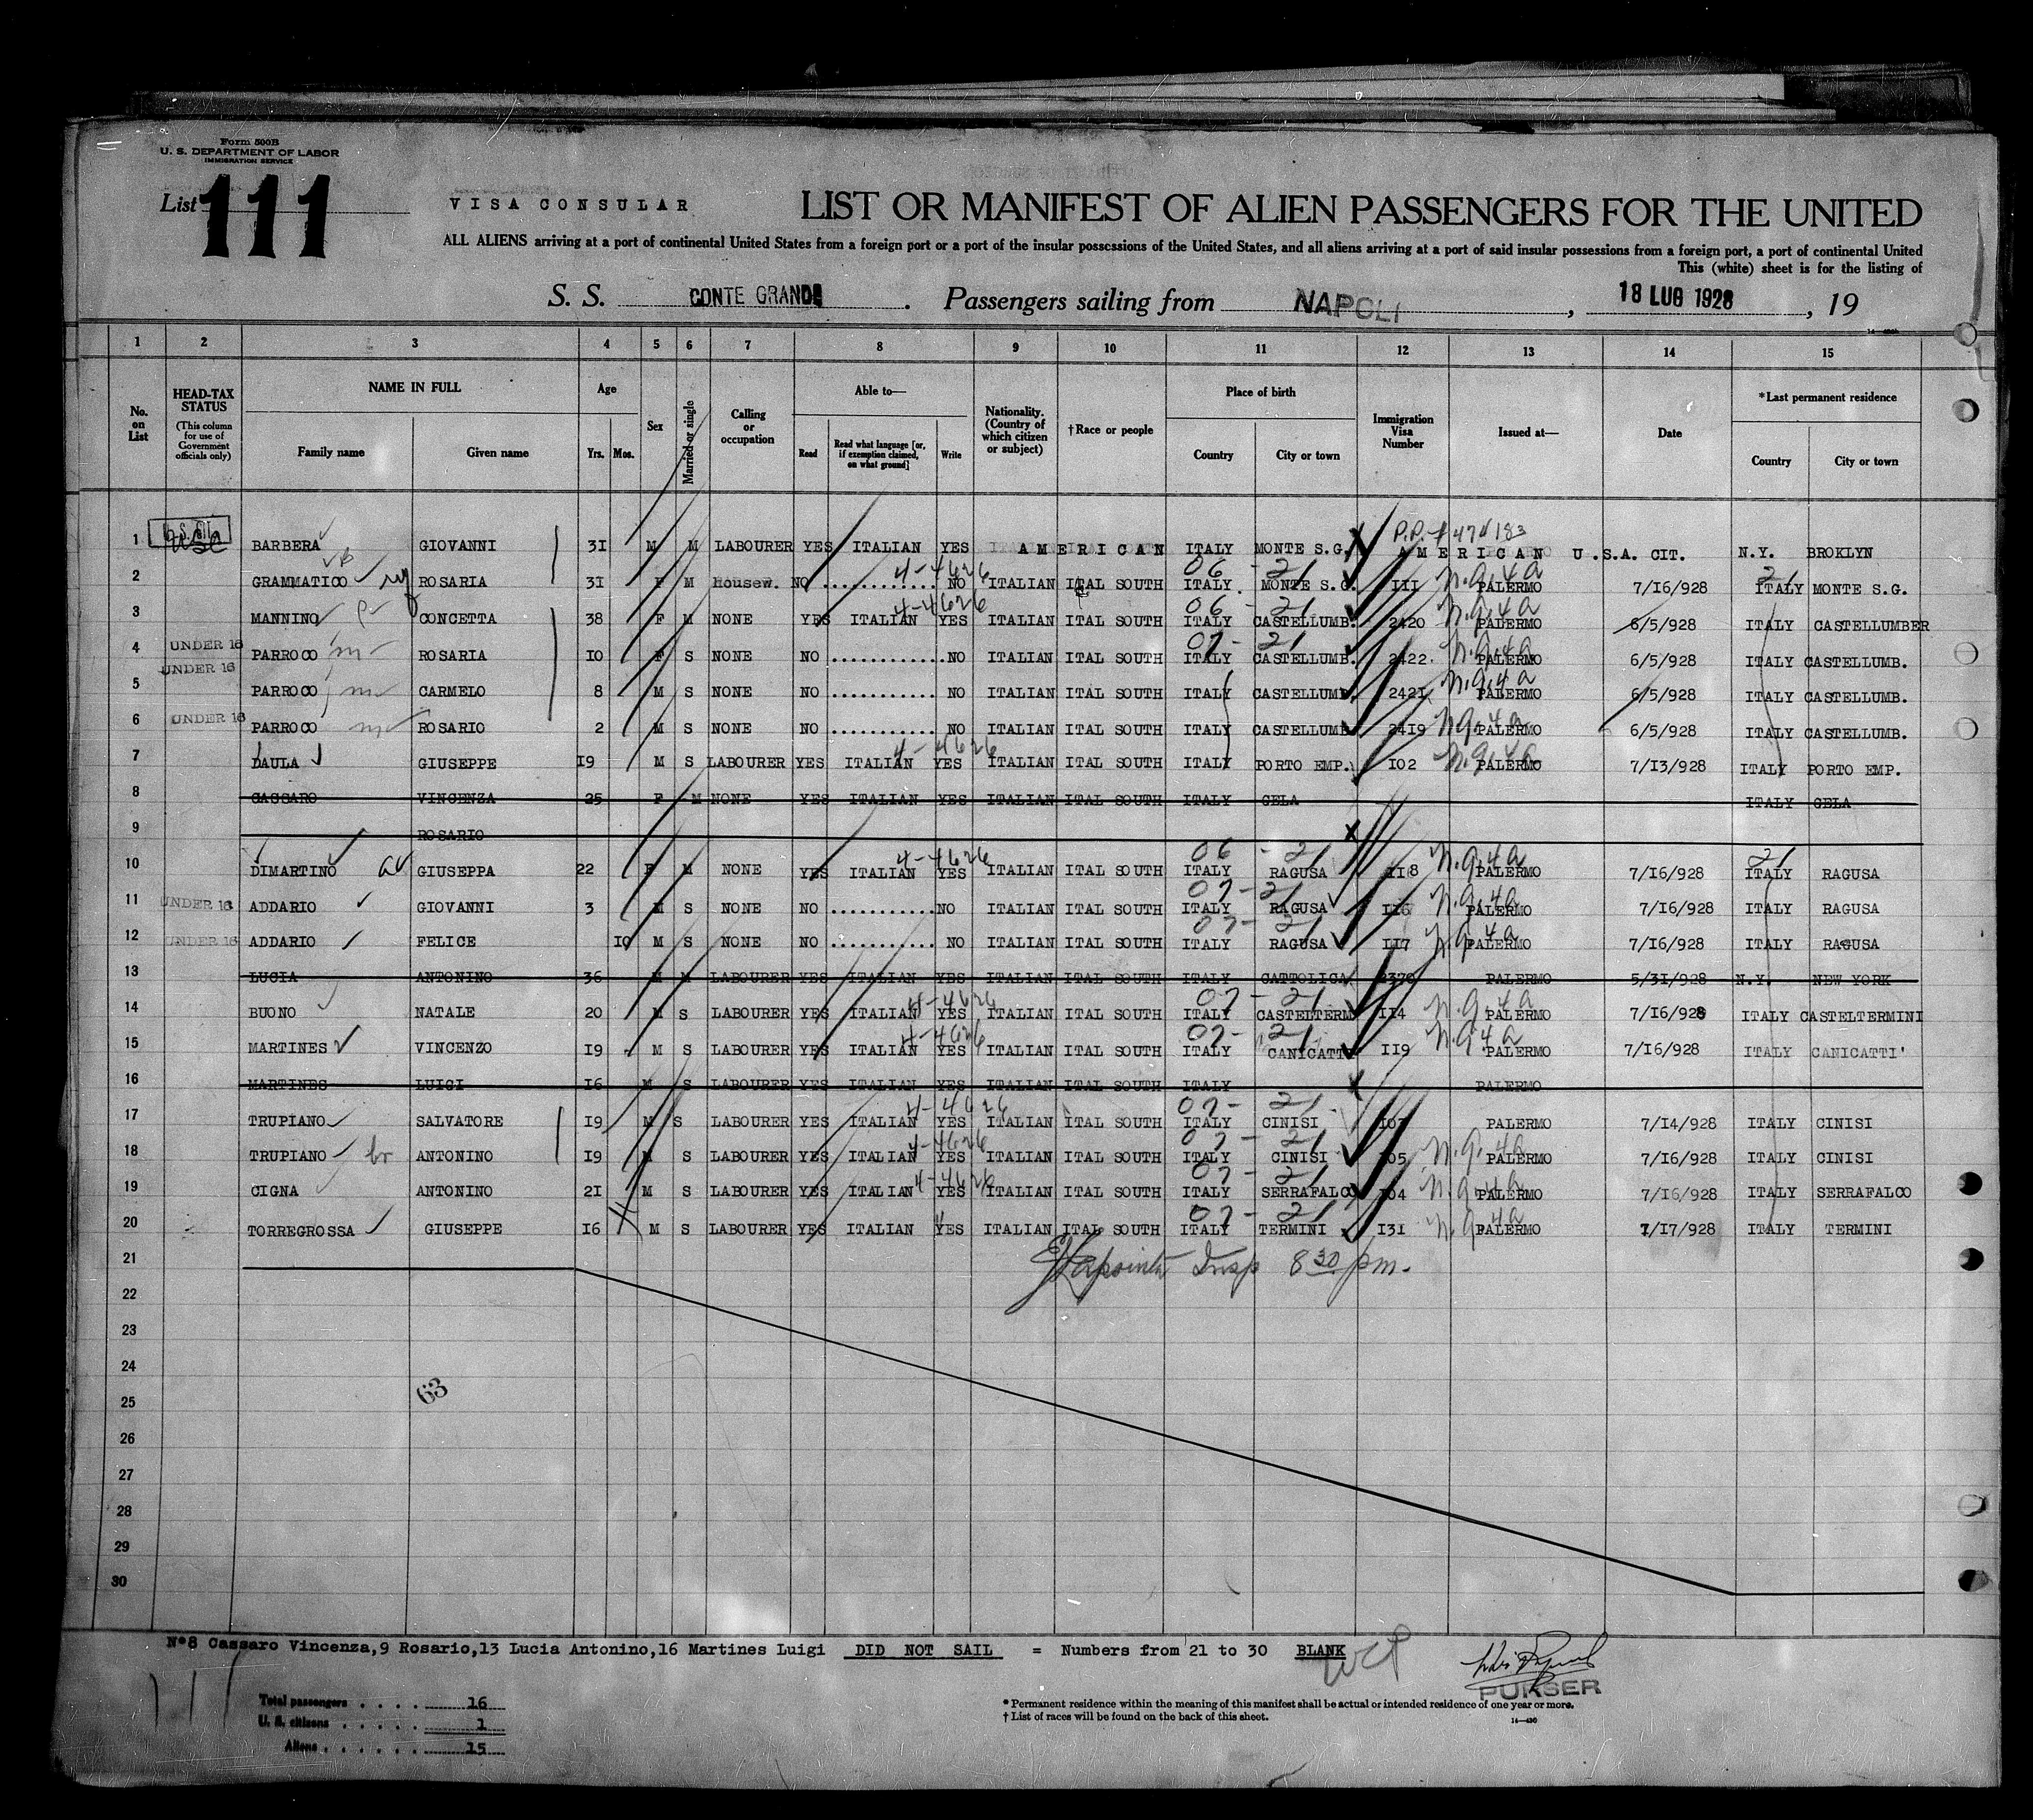 Form 500B
U. S. DEPARTMENT OF LABOR
IMMIGRATION SERVICE
List 111
VISA CONSULAR
LIST OR MANIFEST OF ALIEN PASSENGERS FOR THE UNITED
ALL ALIENS arriving at a port of continental United States from a foreign port or a port of the insular possessions of the United States, and all aliens arriving at a port of said insular possessions from a foreign port, a port of continental United
This (white) sheet is for the listing of
S. S. CONTE GRANDE. Passengers sailing from NAPOLI, 18 LUG 1928, 19
1 2 3 4 5 6 7 8 9 10 11 12 13 14 15
No. on List
HEAD-TAX STATUS
(This column for use of Government officials only)
NAME IN FULL
Family name Given name
Age
Yrs. Mos.
Sex
Married or single
Calling or occupation
Able to—
Read Read what language [or, if exemption claimed, on what ground] Write
Nationality. (Country of which citizen or subject)
†Race or people
Place of birth
Country City or town
Immigration Visa Number
Issued at—
Date
*Last permanent residence
Country City or town
P.P. # 470183
1 BARBERA GIOVANNI 31 M M LABOURER YES ITALIAN YES AMERICAN ITALY MONTE S.G. AMERICAN U.S.A. CIT. N.Y. BROKLYN
2 GRAMMATICO ROSARIA 31 F M Housew. NO ............ NO ITALIAN ITAL SOUTH ITALY MONTE S.G. 111 PALERMO 7/16/928 ITALY MONTE S.G.
3 MANNINO CONCETTA 38 F M NONE YES ITALIAN YES ITALIAN ITAL SOUTH ITALY CASTELLUMB. 2420 PALERMO 6/5/928 ITALY CASTELLUMBER
4 UNDER 16 PARROCO ROSARIA 10 F S NONE NO ............ NO ITALIAN ITAL SOUTH ITALY CASTELLUMB. 2422 PALERMO 6/5/928 ITALY CASTELLUMB.
5 UNDER 16 PARROCO CARMELO 8 M S NONE NO ............ NO ITALIAN ITAL SOUTH ITALY CASTELLUMB. 2421 PALERMO 6/5/928 ITALY CASTELLUMB.
6 UNDER 16 PARROCO ROSARIO 2 M S NONE NO ............ NO ITALIAN ITAL SOUTH ITALY CASTELLUMB 2419 PALERMO 6/5/928 ITALY CASTELLUMB.
7 DAULA GIUSEPPE 19 M S LABOURER YES ITALIAN YES ITALIAN ITAL SOUTH ITALY PORTO EMP. 102 PALERMO 7/13/928 ITALY PORTO EMP.
8 CASSARO VINCENZA 25 F M NONE YES ITALIAN YES ITALIAN ITAL SOUTH ITALY GELA ITALY GELA
9 ROSARIO
10 DIMARTINO GIUSEPPA 22 F M NONE YES ITALIAN YES ITALIAN ITAL SOUTH ITALY RAGUSA 118 PALERMO 7/16/928 ITALY RAGUSA
11 UNDER 16 ADDARIO GIOVANNI 3 M S NONE NO ............ NO ITALIAN ITAL SOUTH ITALY RAGUSA 116 PALERMO 7/16/928 ITALY RAGUSA
12 UNDER 16 ADDARIO FELICE 10 M S NONE NO ............ NO ITALIAN ITAL SOUTH ITALY RAGUSA 117 PALERMO 7/16/928 ITALY RAGUSA
13 LUCIA ANTONINO 36 M M LABOURER YES ITALIAN YES ITALIAN ITAL SOUTH ITALY CATTOLICA 2370 PALERMO 5/31/928 N.Y. NEW YORK
14 BUONO NATALE 20 M S LABOURER YES ITALIAN YES ITALIAN ITAL SOUTH ITALY CASTELTERM 114 PALERMO 7/16/928 ITALY CASTELTERMINI
15 MARTINES VINCENZO 19 M S LABOURER YES ITALIAN YES ITALIAN ITAL SOUTH ITALY CANICATTI 119 PALERMO 7/16/928 ITALY CANICATTI'
16 MARTINES LUIGI 16 M S LABOURER YES ITALIAN YES ITALIAN ITAL SOUTH ITALY PALERMO
17 TRUPIANO SALVATORE 19 M S LABOURER YES ITALIAN YES ITALIAN ITAL SOUTH ITALY CINISI 107 PALERMO 7/14/928 ITALY CINISI
18 TRUPIANO br ANTONINO 19 M S LABOURER YES ITALIAN YES ITALIAN ITAL SOUTH ITALY CINISI 105 PALERMO 7/16/928 ITALY CINISI
19 CIGNA ANTONINO 21 M S LABOURER YES ITALIAN YES ITALIAN ITAL SOUTH ITALY SERRAFALCO 104 PALERMO 7/16/928 ITALY SERRAFALCO
20 TORREGROSSA GIUSEPPE 16 M S LABOURER YES ITALIAN YES ITALIAN ITAL SOUTH ITALY TERMINI 131 PALERMO 7/17/928 ITALY TERMINI
21 Insp 8 30 pm.
22
23
24
25 63
26
27
28
29
30
N°8 Cassaro Vincenza,9 Rosario,13 Lucia Antonino,16 Martines Luigi DID NOT SAIL = Numbers from 21 to 30 BLANK
PURSER
Total passengers . . . . 16
U. S. citizens . . . . . 1
Aliens . . . . . . 15
* Permanent residence within the meaning of this manifest shall be actual or intended residence of one year or more.
† List of races will be found on the back of this sheet.
14—430